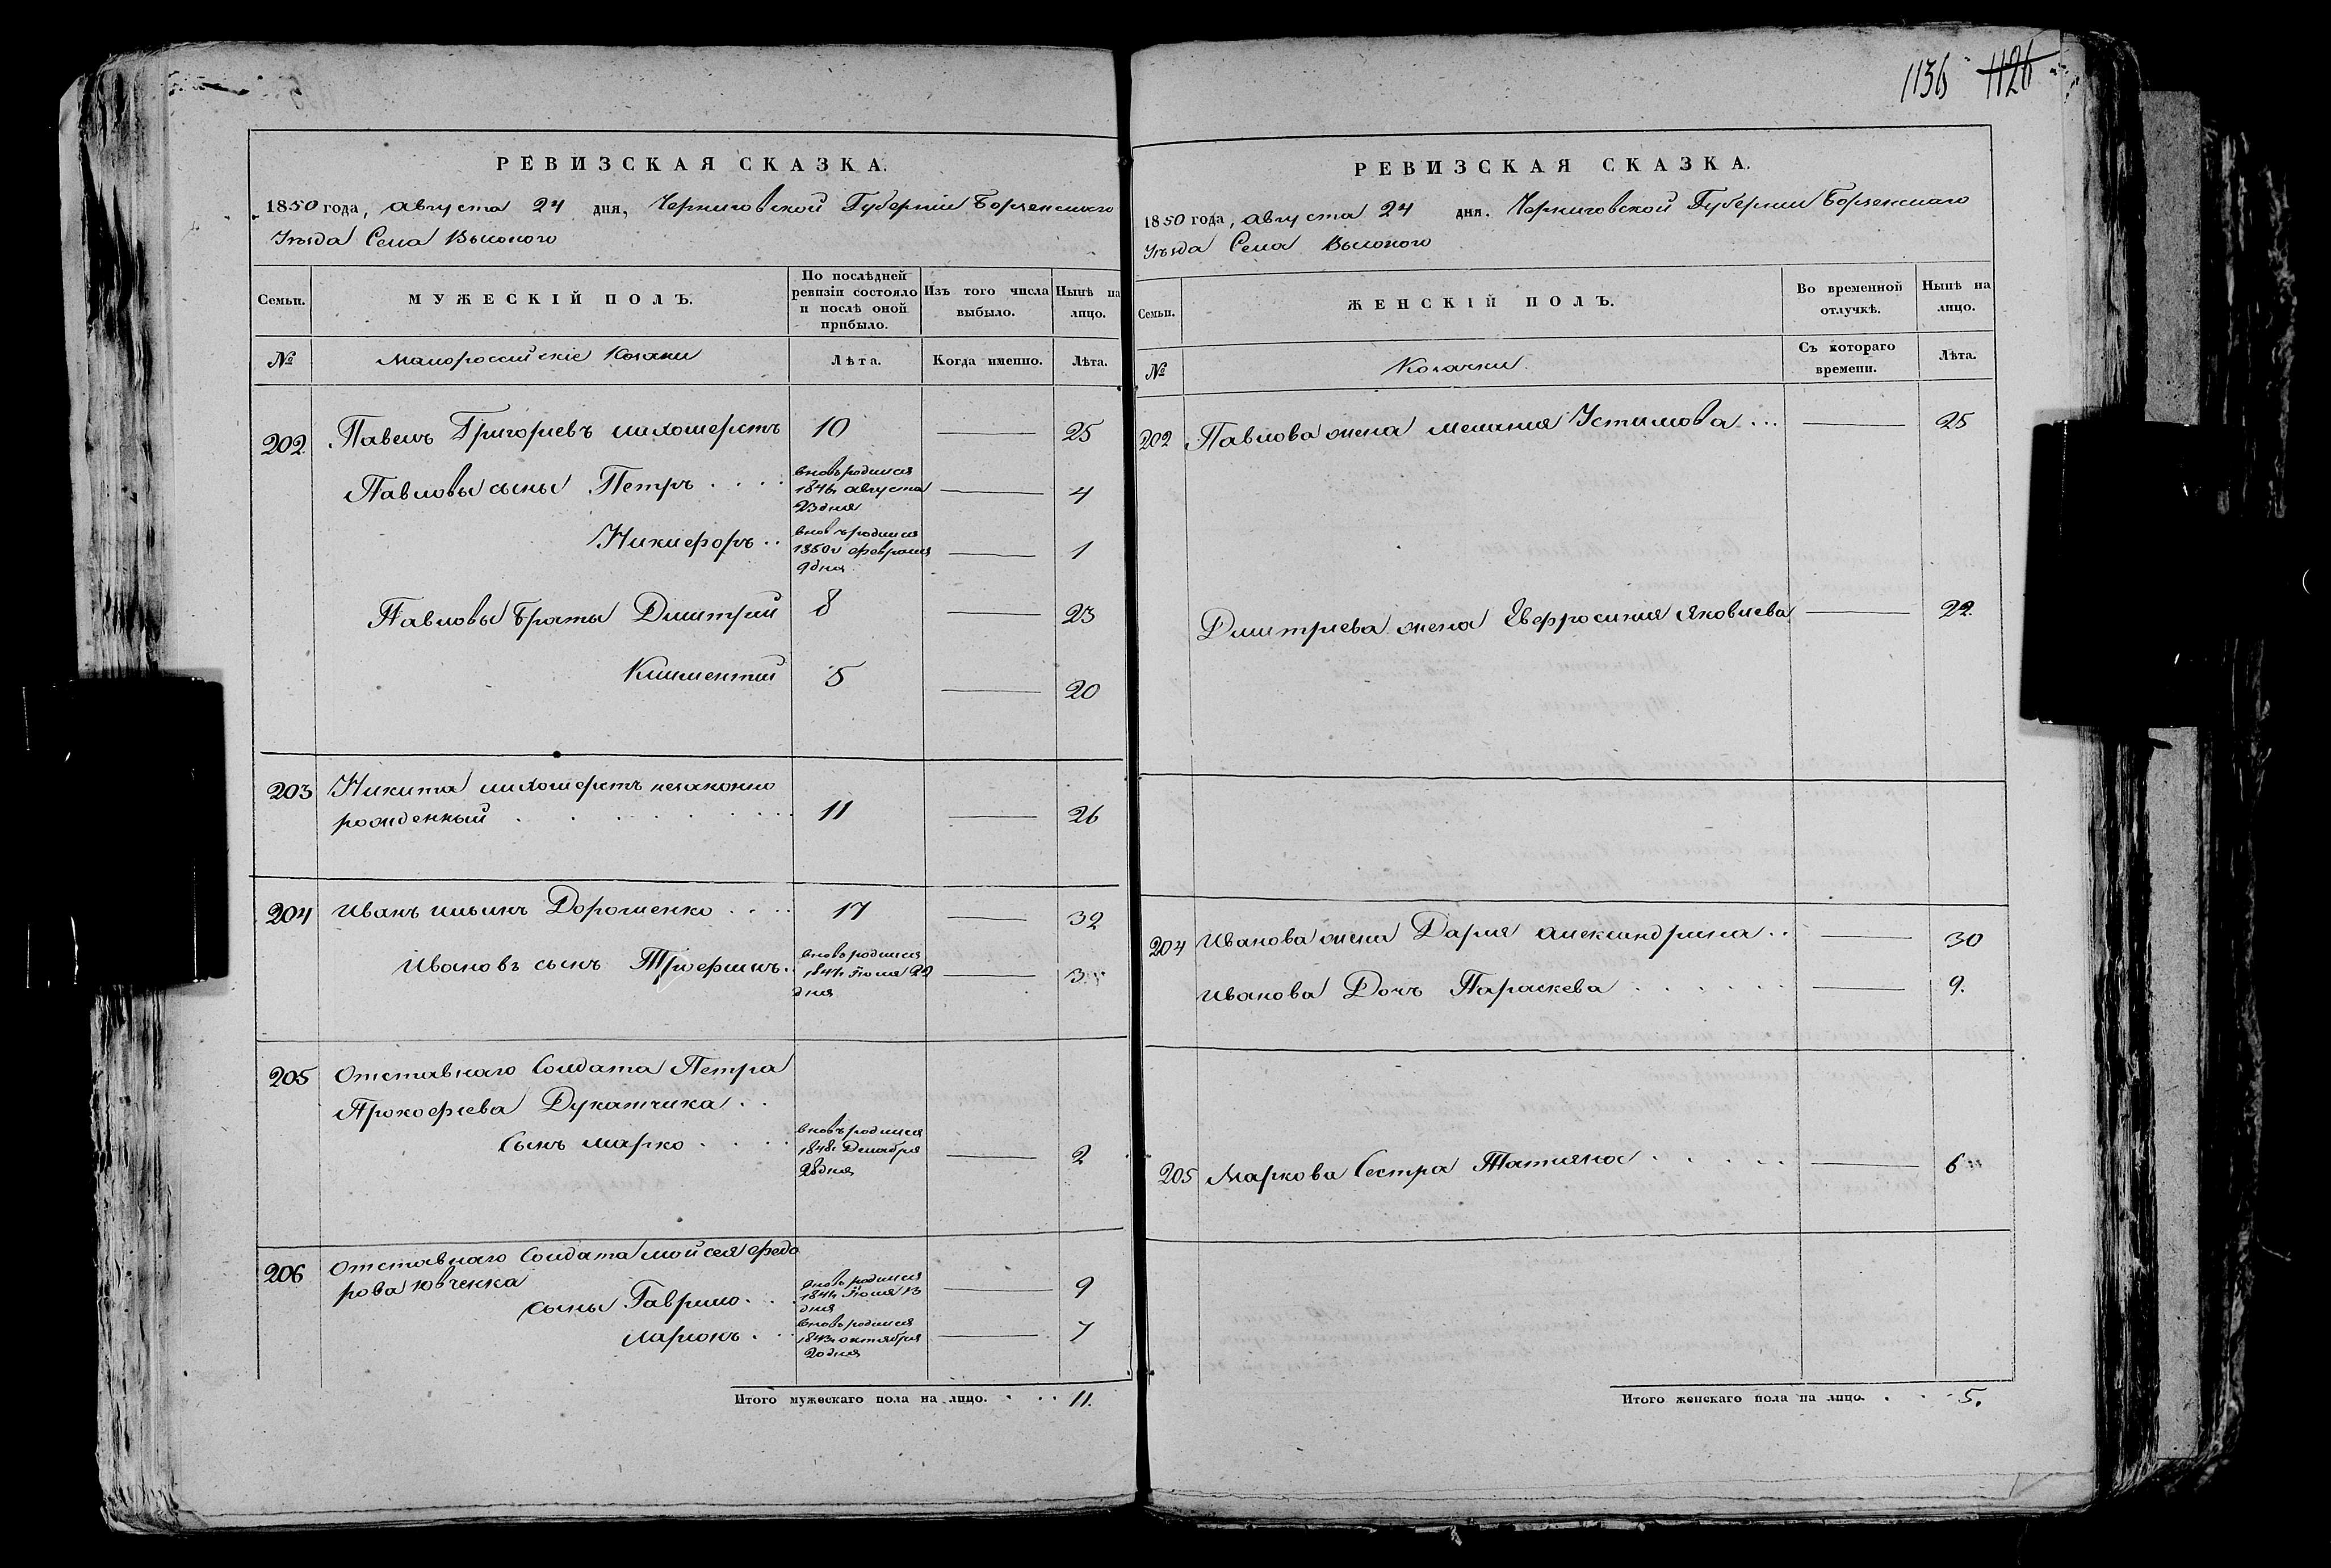 1136 1126
РЕВИЗСКАЯ СКАЗКА.
1850 года, августа 24 дня, Черниговской Губерніи Борзенскаго
Уѣзда Села Высокого
Семьи.
МУЖЕСКІЙ ПОЛЪ.
По послѣдней
ревизіи состояло
и послѣ оной
прибыло.
Изъ того числа
выбыло.
Нынѣ на
лицо.
№
Малороссійскіе Козаки
Лѣта.
Когда именно.
Лѣта.
202. Павелъ Григорьевъ Лихошерстъ 10 25
Павловы сыны Петръ . . . . вновь родился
1846 августа 4
23 дня
Никифоръ . . вновь родился
1850 февраля 1
9 дня
Павловы Браты Дмитрій 8 23
Климентій 5 20
203 Никита Лихошерстъ незаконно
рожденный . . . . . . . . 11 26
204 Иванъ Ильинъ Дорошенко . . . . 17 32
Ивановъ сынъ Трофимъ . . вновь родился
1847 Іюля 22 3
дня
205 Отставнаго Солдата Петра
Прокофьева Дукатчика . .
Сынъ Марко . . . . вновь родился
1848 Декабря 2
28 дня
206 Отставнаго Солдата Мойсея Федо
рова Ювченка
сыны Гаврило . . . вновь родился
1841 Іюля 13 9
дня
Ларіонъ . . вновь родился
1843 октября 7
20 дня
Итого мужескаго пола на лицо. . . . 11.
РЕВИЗСКАЯ СКАЗКА.
1850 года, августа 24 дня. Черниговской Губерніи Борзенскаго
Уѣзда Села Высокого
Семьи.
ЖЕНСКІЙ ПОЛЪ.
Во временной
отлучкѣ.
Нынѣ на
лицо.
№
Козачки.
Съ котораго
времени.
Лѣта.
202 Павлова жена Меланія Устимова . . . 25
Дмитріева жена Евфросинія Яковлева 22
204 Иванова жена Дарія Александрина . . 30
Иванова Дочь Параскева . . . . . . 9.
205 Маркова Сестра Татьяна . . . . . 6
Итого женскаго пола на лицо. . . . 5.